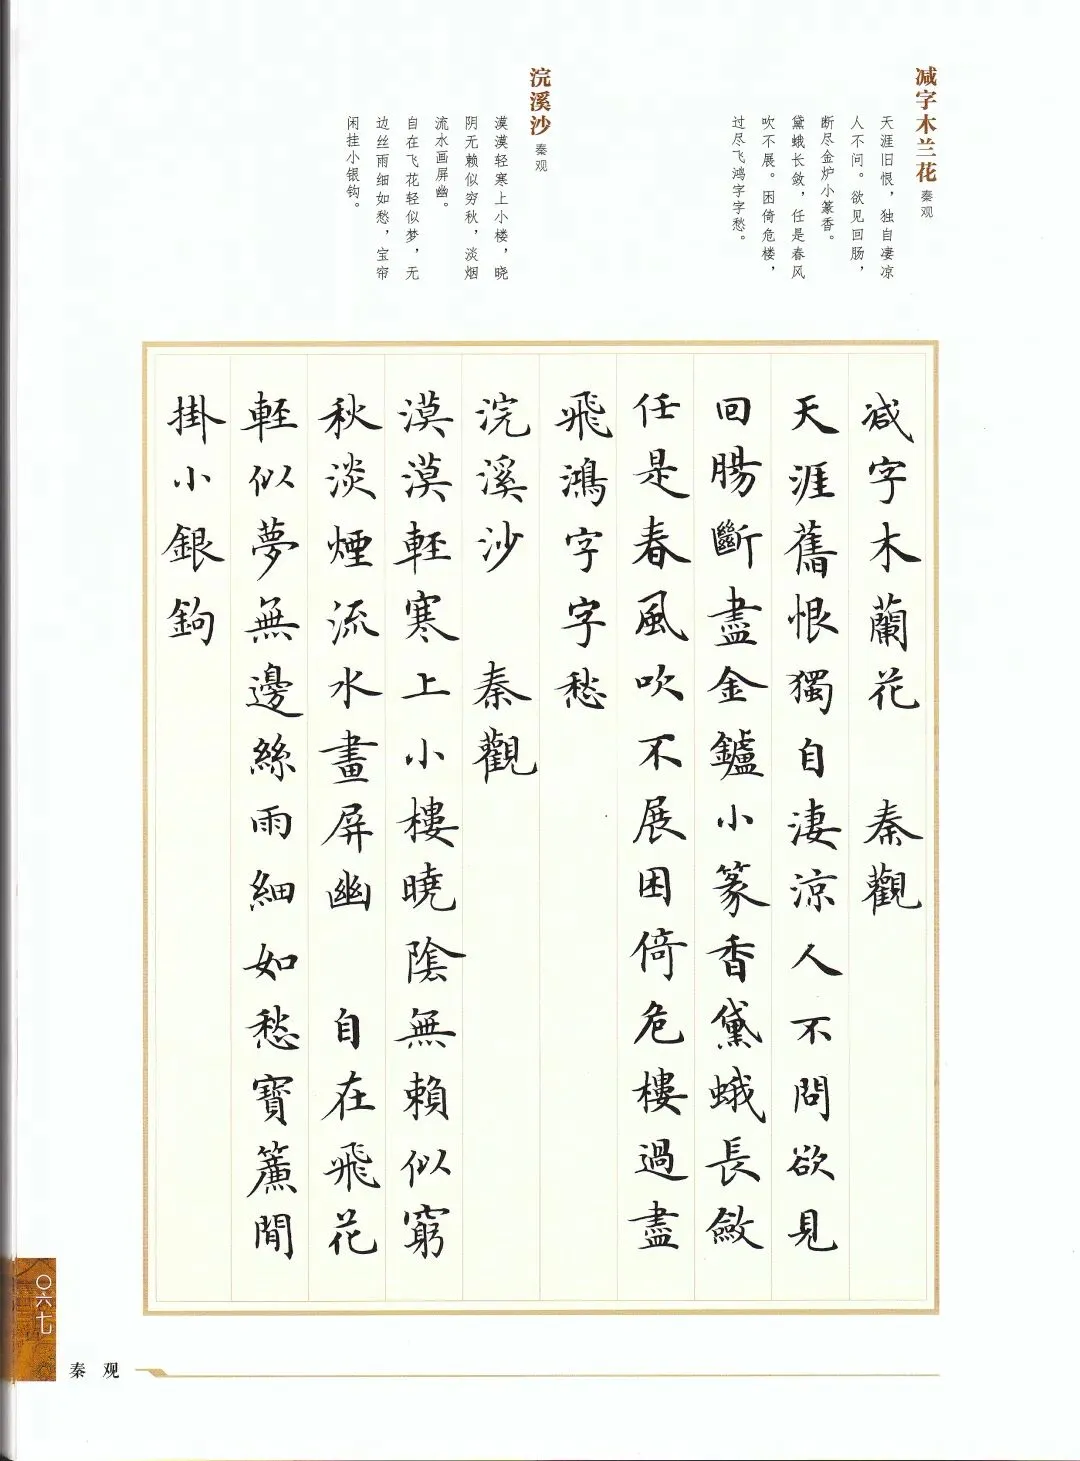 减字木兰花 秦观
天涯旧恨，独自凄凉
人不问。欲见回肠，
断尽金炉小篆香。
黛蛾长敛，任是春风
吹不展。困倚危楼，
过尽飞鸿字字愁。
浣溪沙 秦观
漠漠轻寒上小楼，晓
阴无赖似穷秋，淡烟
流水画屏幽。
自在飞花轻似梦，无
边丝雨细如愁，宝帘
闲挂小银钩。
减字木蘭花 秦觀
天涯舊恨獨自淒涼人不問欲見
回腸斷盡金鑪小篆香黛蛾長斂
任是春風吹不展困倚危樓過盡
飛鴻字字愁
浣溪沙 秦觀
漠漠輕寒上小樓曉陰無賴似窮
秋淡煙流水畫屏幽 自在飛花
輕似夢無邊絲雨細如愁寶簾閒
掛小銀鉤
〇六七
秦观